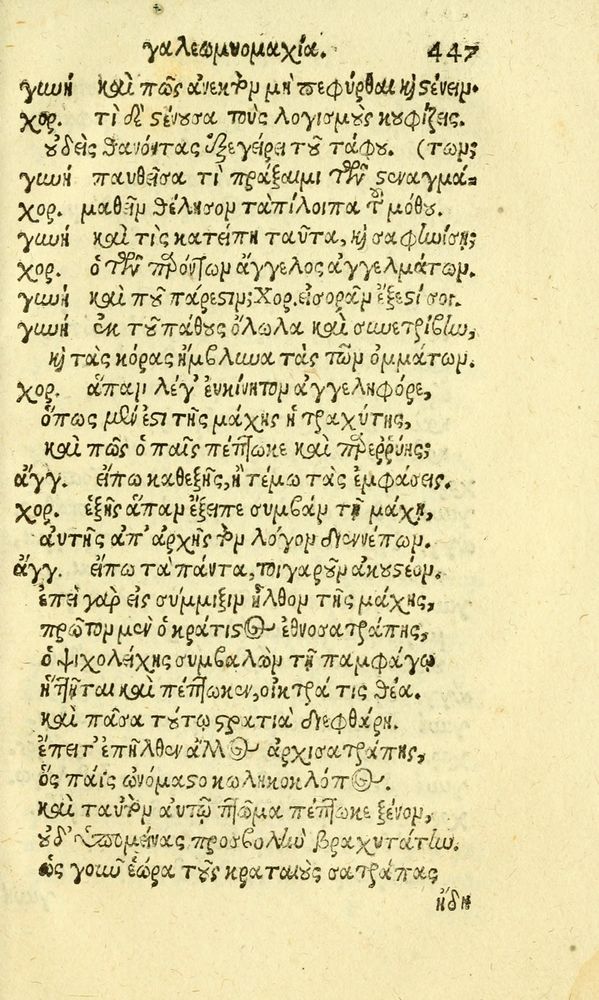 γαλεωμυομαχία. 447
γυνή καὶ πῶς ἀνεκτὸν μὴ πεφύρθαι κỳ στένειν.
χορ. τί δὲ στένουσα τοὺς λογισμοὺς κουφίζεις.
οὐδεὶς θανόντας ἐξεγείρει τοῦ τάφου. (των;
γυνή παυθεῖσα τί πράξαιμι τῶν στεναγμά=
χορ. μαθεῖν θέλησον τἀπίλοιπα τοῦ μόθου.
γυνή καὶ τίς κατείπῃ ταῦτα, κỳ σαφηνίσῃ;
χορ. ὁ τῶν προόντων ἄγγελος ἀγγελμάτων.
γυνή καὶ ποῦ πάρεστιν; Χορ. εἰσορᾶν ἔξεστί σοι.
γυνή ἐκ τοῦ πάθους ὄλωλα καὶ συνετρίβην,
κỳ τὰς κόρας ἤμβλυνα τὰς τῶν ὀμμάτων.
χορ. ἅπαν λέγ' εὐκίνητον ἀγγεληφόρε,
ὅπως μέν ἐστι τῆς μάχης ἡ τραχύτης,
καὶ πῶς ὁ παῖς πέπτωκε καὶ προερρύης;
ἄγγ. εἴπω καθεξῆς, ἢ τέμω τὰς ἐμφάσεις.
χορ. ἑξῆς ἅπαν ἔξειπε συμβὰν τῇ μάχῃ,
αὐτῆς ἀπ' ἀρχῆς τὸν λόγον διεννέπων.
ἄγγ. εἴπω τὰ πάντα, τοιγαροῦν ἀκουστέον.
ἐπεὶ γὰρ εἰς σύμμιξιν ἦλθον τῆς μάχης,
πρῶτον μὲν ὁ κράτιστος ἐθνοσατράπης,
ὁ ψιχολείχης συμβαλὼν τῇ παμφάγῳ
ἥττηται καὶ πέπτωκεν, οἰκτρά τις θέα.
καὶ πᾶσα τούτῳ στρατιὰ διεφθάρη.
ἔπειτ' ἐπῆλθεν ἄλλος ἀρχισατράπης,
ὃς παῖς ὠνόμαστο κωληκοκλόπος.
καὶ ταυτὸν αὐτῷ πτῶμα πέπτωκε ξένον,
οὐδ' ὑπομείνας προσβολὴν βραχυτάτην.
ὡς γοῦν ἑώρα τοὺς κραταιοὺς σατράπας
ἤδη